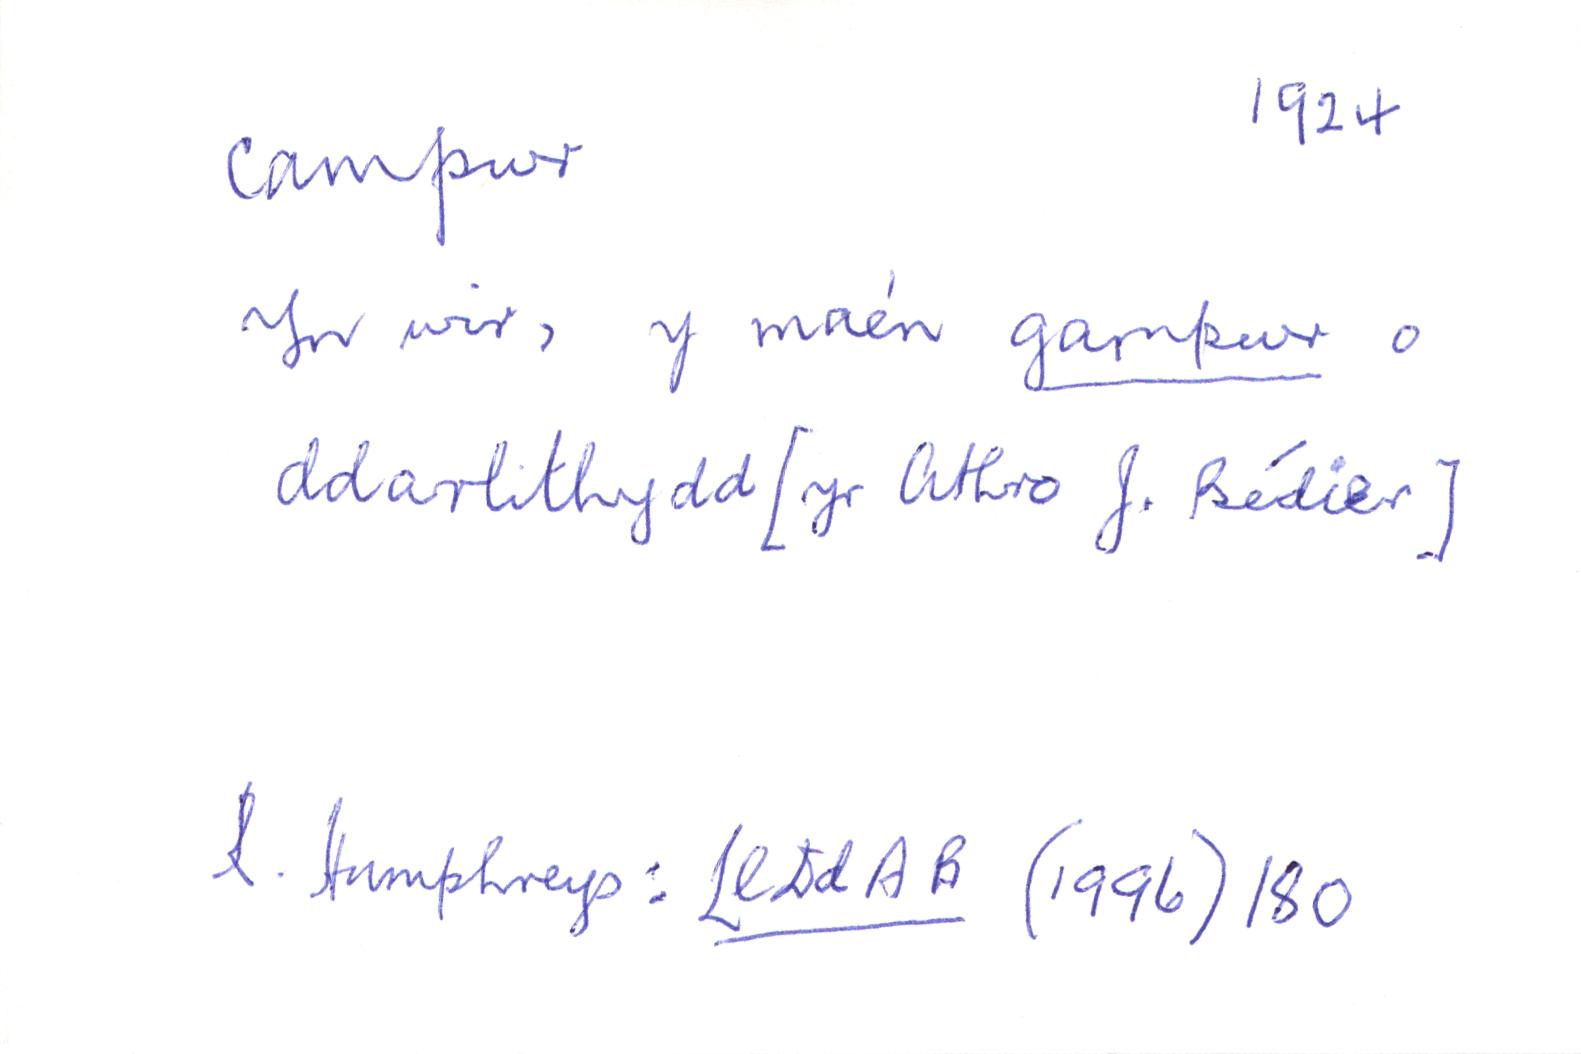 1924
campwr
Yn wir, y mae'n gampwr o
ddarlithydd [yr Athro J. Bédier]
E. Humphreys: LlDdAB (1996) 180